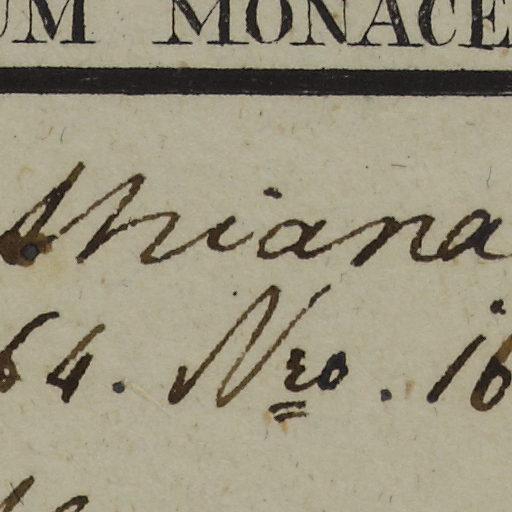 UM MONACE
thiana
64. Nro. 16